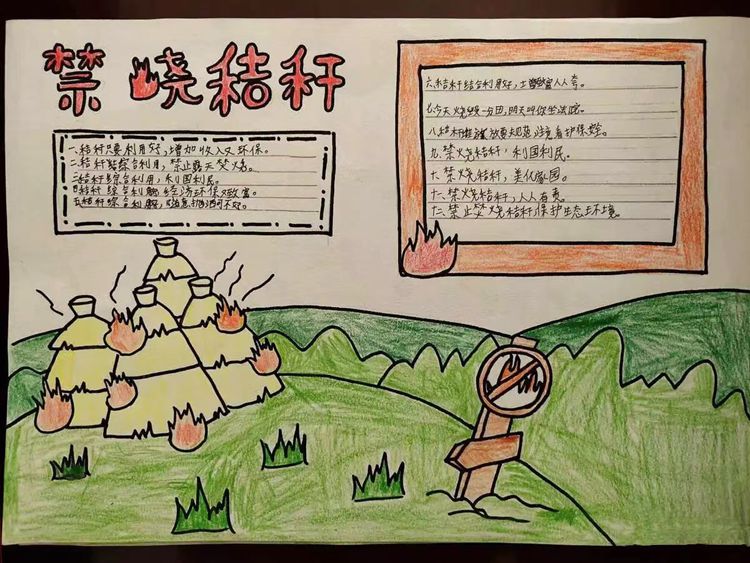 禁烧秸秆
一、秸秆只要利用好,增加收入又环保。
二、秸秆综合利用,禁止露天焚烧。
三、秸秆综合利用,利国利民。
四、秸秆综合利用经济环保又致富。
五、秸秆综合利用,
六、秸秆综合利用好,土人人夸。
七、今天烧一分田,明天叫你坐法院。
八、秸秆放要规范,注意看护保安全。
九、禁烧秸秆,利国利民。
十、禁烧秸秆,美化家园。
十一、禁烧秸秆,人人有责。
十二、禁止焚烧秸秆,保护生态环境。